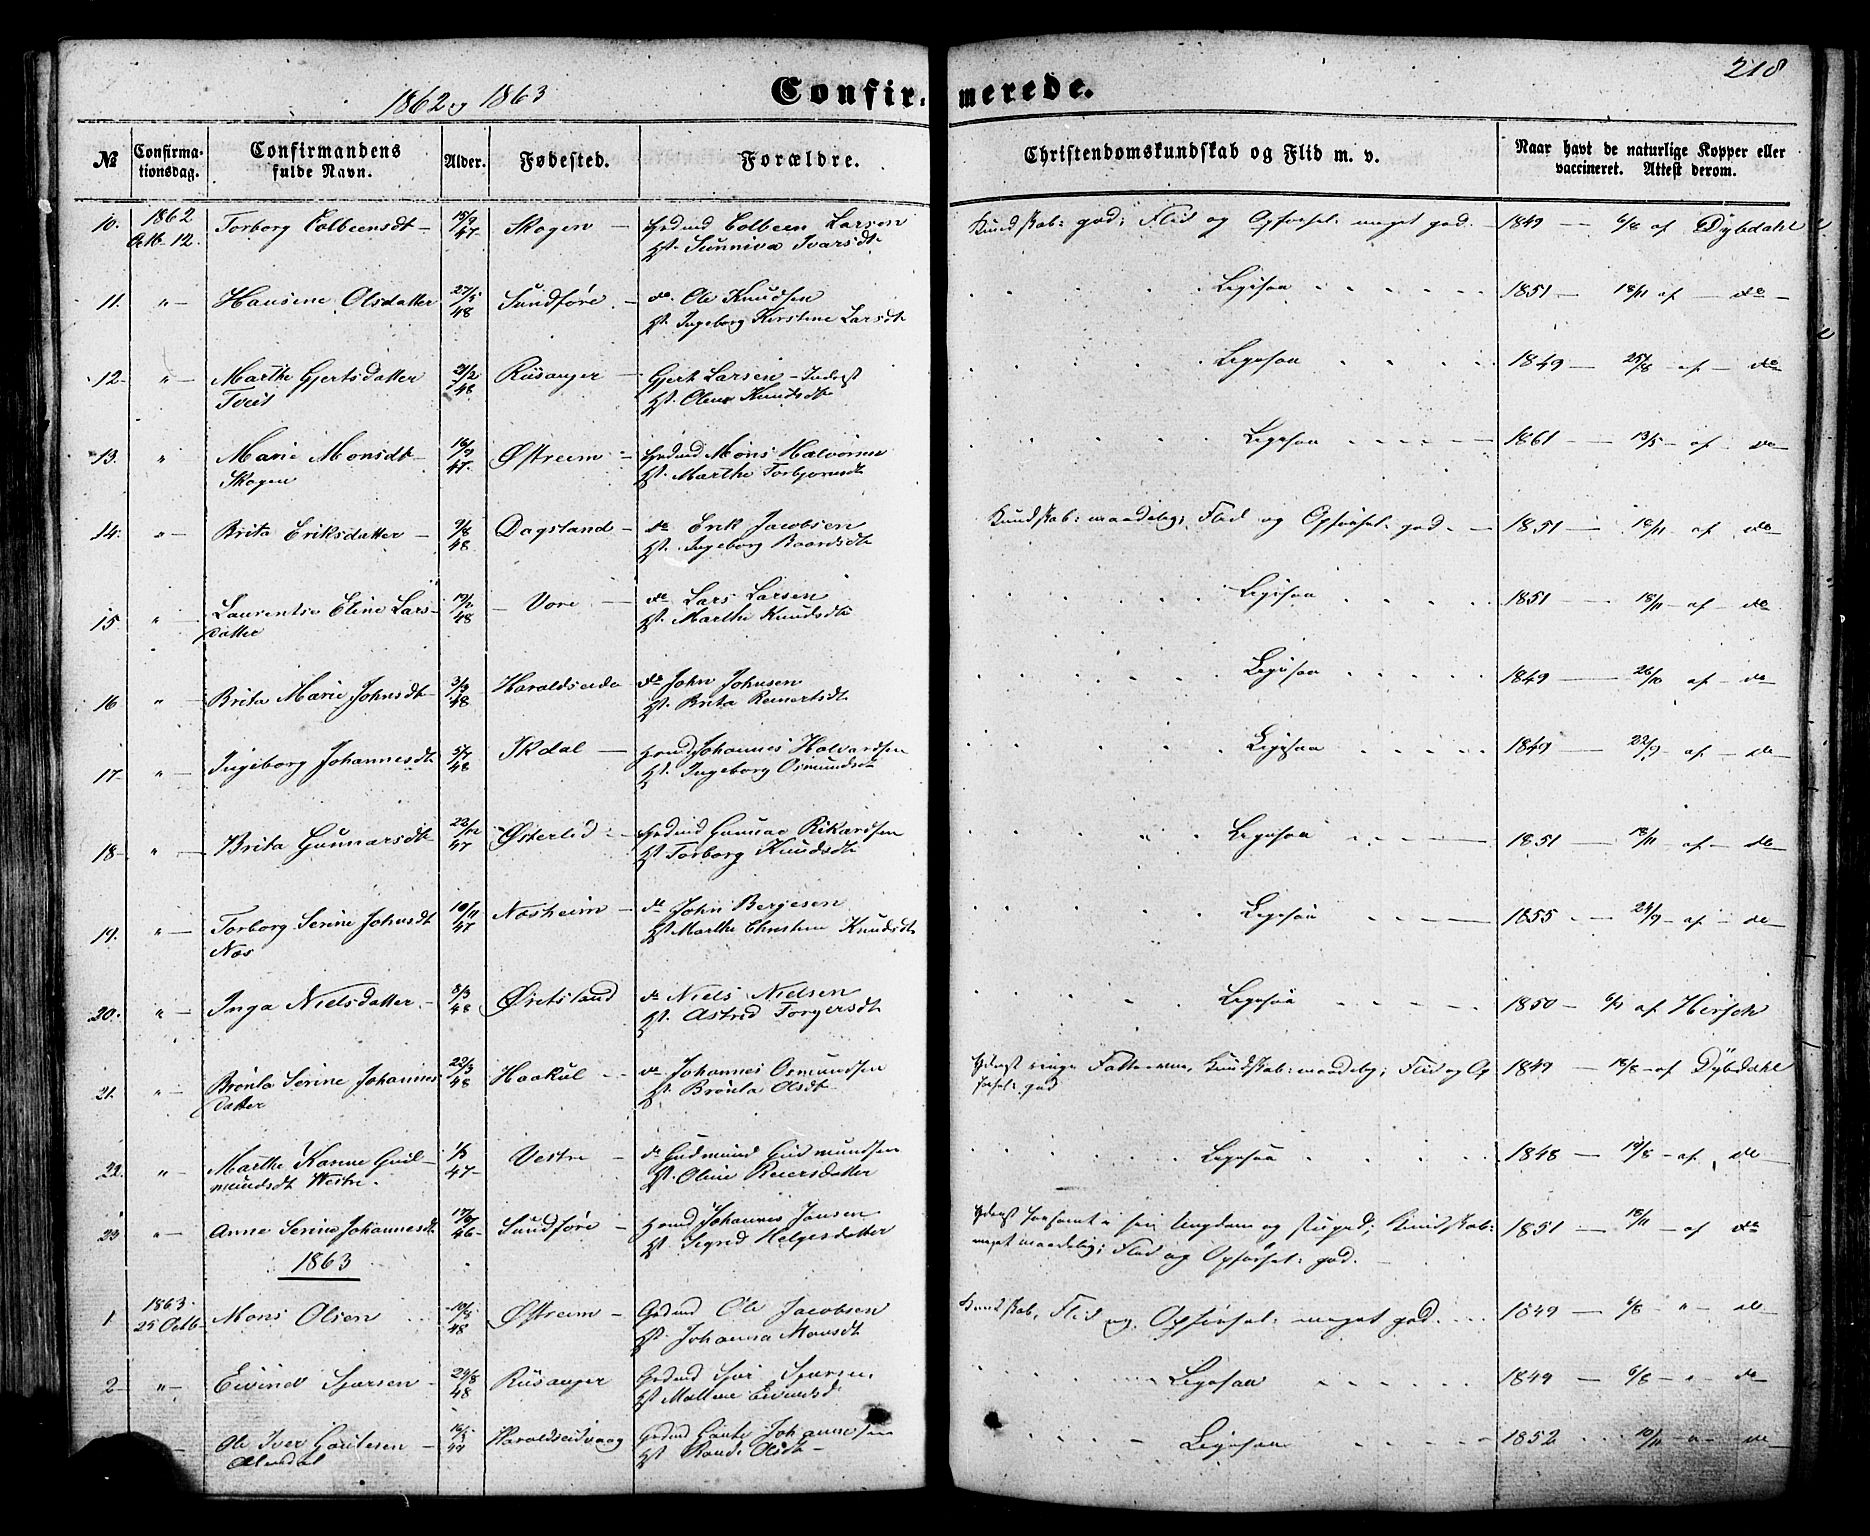 218
1862 og 1863
Confirmerede.
№ Confirmationsdag. Confirmandens fulde Navn. Alder. Fødested. Forældre. Christendomskundskab og Flid m. v. Naar havt de naturlige Kopper eller vaccineret. Attest derom.
10. 1862 Torborg Colbeensdt 47 Skogen Colbeen Larsen Kundskab: god; Flid og Opførsel: meget god. 1849 6/8 af Dybdahl
Octb. 12. Sunniva Ivarsdt
11. " Hansine Olsdatter 27/5 48 Sundføre do Ole Knudsen Ligesaa 1851 18/11 af do
Ingeborg Kirstine Larsdt
12. " Marthe Gjertsdatter 48 Risanger Gjert Larsen Ligesaa 1849 25/8 af do
Tveit Knudsdt
13. " Marie Monsdt 16/9 47 Østreim Mons Halvorsen Ligesaa 1861 13/5 af do
Skogen Marthe Torbjornsdt
14. " Brita Eriksdatter 9/8 48 Dagsland do Erik Jacobsen Kundskab: maadelig; Flid og Opførsel: god. 1851 18/11 af do
Ingeborg Baardsdt
15. " Laurentse Eline Lars- 19/2 48 Vore do Lars Larsen Ligesaa 1851 18/11 af do
datter Marthe Knudsdt
16 " Brita Marie Johnsdt 3/9 48 Haraldseide do John Johnsen Ligesaa 1849 26/10 af do
Brita Reinertsdt
17. " Ingeborg Johannesdt 5/7 48 Skdal Johannes Halvardsen Ligesaa 1849 22/9 af do
Ingeborg Osmundsdt
18 " Brita Gunnarsdt 22/12 47 Østerlid Gunnar Rikardsen Ligesaa 1851 18/11 af do
Torborg Knudsdt
19. " Torborg Serine Johnsdt 10/11 47 Næsheim do John Berjesen Ligesaa 1855 24/9 af do
Næs Marthe Christine Knudsdt
20. " Inga Nielsdatter 8/3 48 Øretsland do Niels Nielsen Ligesaa 1850 af Hirsch
Astrid Torgersdt
21. " Brønla Serine Johannes 22/3 48 Haakul do Johannes Osmundsen Yderst ringe Fatteevne, Kundskab: maadelig; Flid og Op 1849 18/8 af Dybdahl
datter Brønla Olsdt førsel: god
22. " Marthe Karine Gud- 47 Vestre do Gudmund Gudmundsen Ligesaa 1848 19/8 af do
mundsdt Westre. Oline Reiersdatter
23 " Anne Serine Johannesdt 46 Sundføre Johannes Jansen Yderst forsømt i sin Ungdom og stupid; Kundskab: 1851 18/11 af do
Sigrid Helgesdatter meget maadelig; Flid og Opførsel: god.
1863
1 1863 Mons Olsen 48 Østreim Ole Jacobsen Kundskab, Flid og Opførsel: meget god. 1849 6/8 " do
25 Octb. Johanna Monsdt
2 " Eivind Sjursen 24/8 48 Risanger Sjur Sjursen Ligesaa 1849 6/8 " do
Malline Eivindsd
Ole Iver Gautesen Haraldseidvaag Gaute Johannesen Ligesaa 1852 10/11 " do
Olsdt